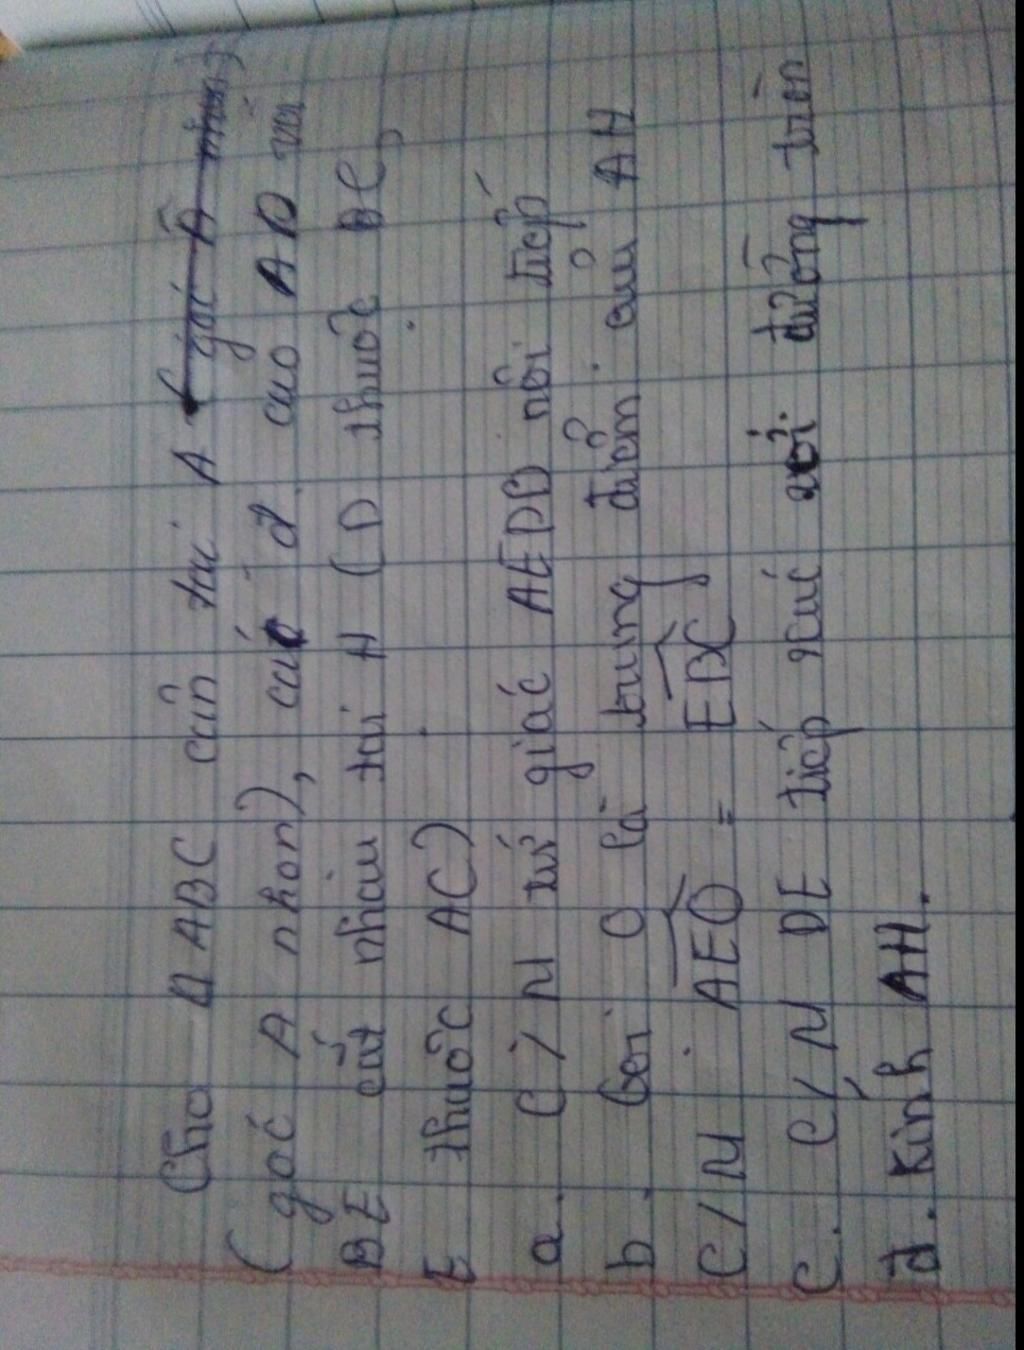 Cho Δ ABC cân tại A (góc Â nhọn)
(góc A nhọn), các đ. cao AD và
BE cắt nhau tại H (D thuộc BC,
E thuộc AC)
a. C/M tứ giác AEDB nội tiếp
b. Gọi O là trung điểm của AH
C/M: AEO = EBC
c. C/M DE tiếp xúc với đường tròn
đ. Kính AH.